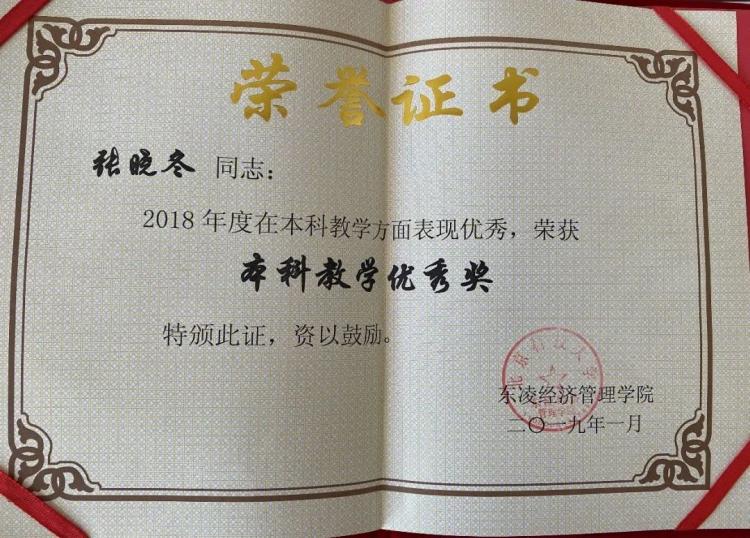 荣誉证书
张晓冬 同志：
2018 年度在本科教学方面表现优秀，荣获
本科教学优秀奖
特颁此证，资以鼓励。
东凌经济管理学院
二〇一九年一月